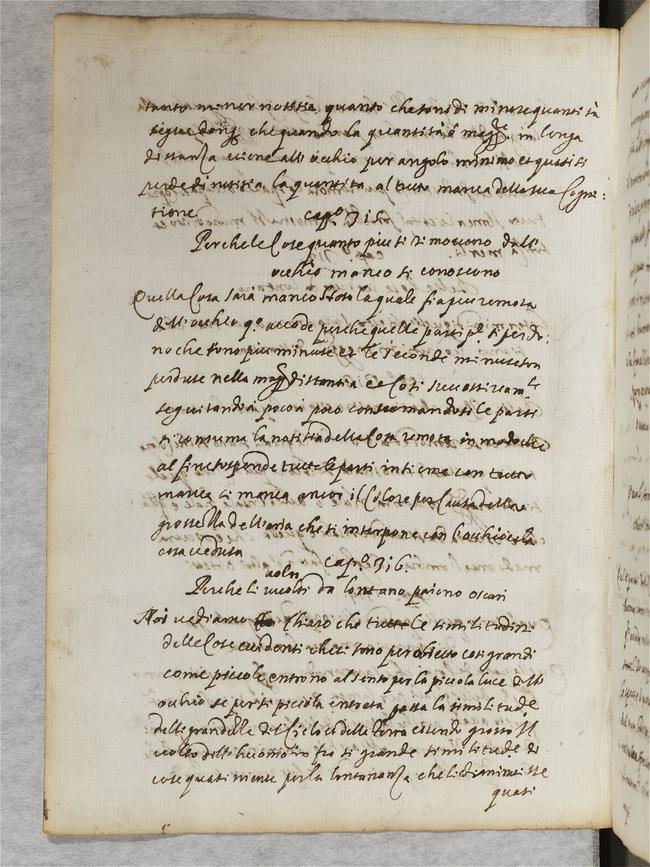 tanto minor notitia, quanto che sono di minore quantità
segue donq. che quando la quantità è magre in longa
distanza viene all'occhio per angolo minimo et quasi si
perde di notitia la quantita al tutto manca della sua Cogni:
tione
cap.º 315.
Perche le Cose quanto piu si rimoveno dall'
occhio manco si conoscono
Quella Cosa sara manco nota la quale sia piu remota
dall'occhio qº accade perche quelle parti pº si perdo:
no che sono piu minute et le seconde minute son
perdute nella magre distantia et cosi successivamte
seguitando a poco a poco consumandosi le parti
si consuma la notitia della Cosa remota in modo che
al fine si perde tutte le parti insieme con tutto
manca ancor il Colore per Causa della
grossezza dell'aria che si interpone tra l'occhio e la
cosa veduta
cap.º 316.
volti
Perche li volti da lontano paieno oscuri
Noi vediamo chiaro che tutte le similitudini
delle Cose evidenti che ci sono per obietto cosi grandi
come piccole entrono al senso per la picola luce dell'
occhio se per si picola entrata passa la similitude
della grandezza del Cielo et della Terra essendo il
volto dell'huomo in fra si grande similitude di
cose quasi niente per la lontananza che li diminuisse
quasi